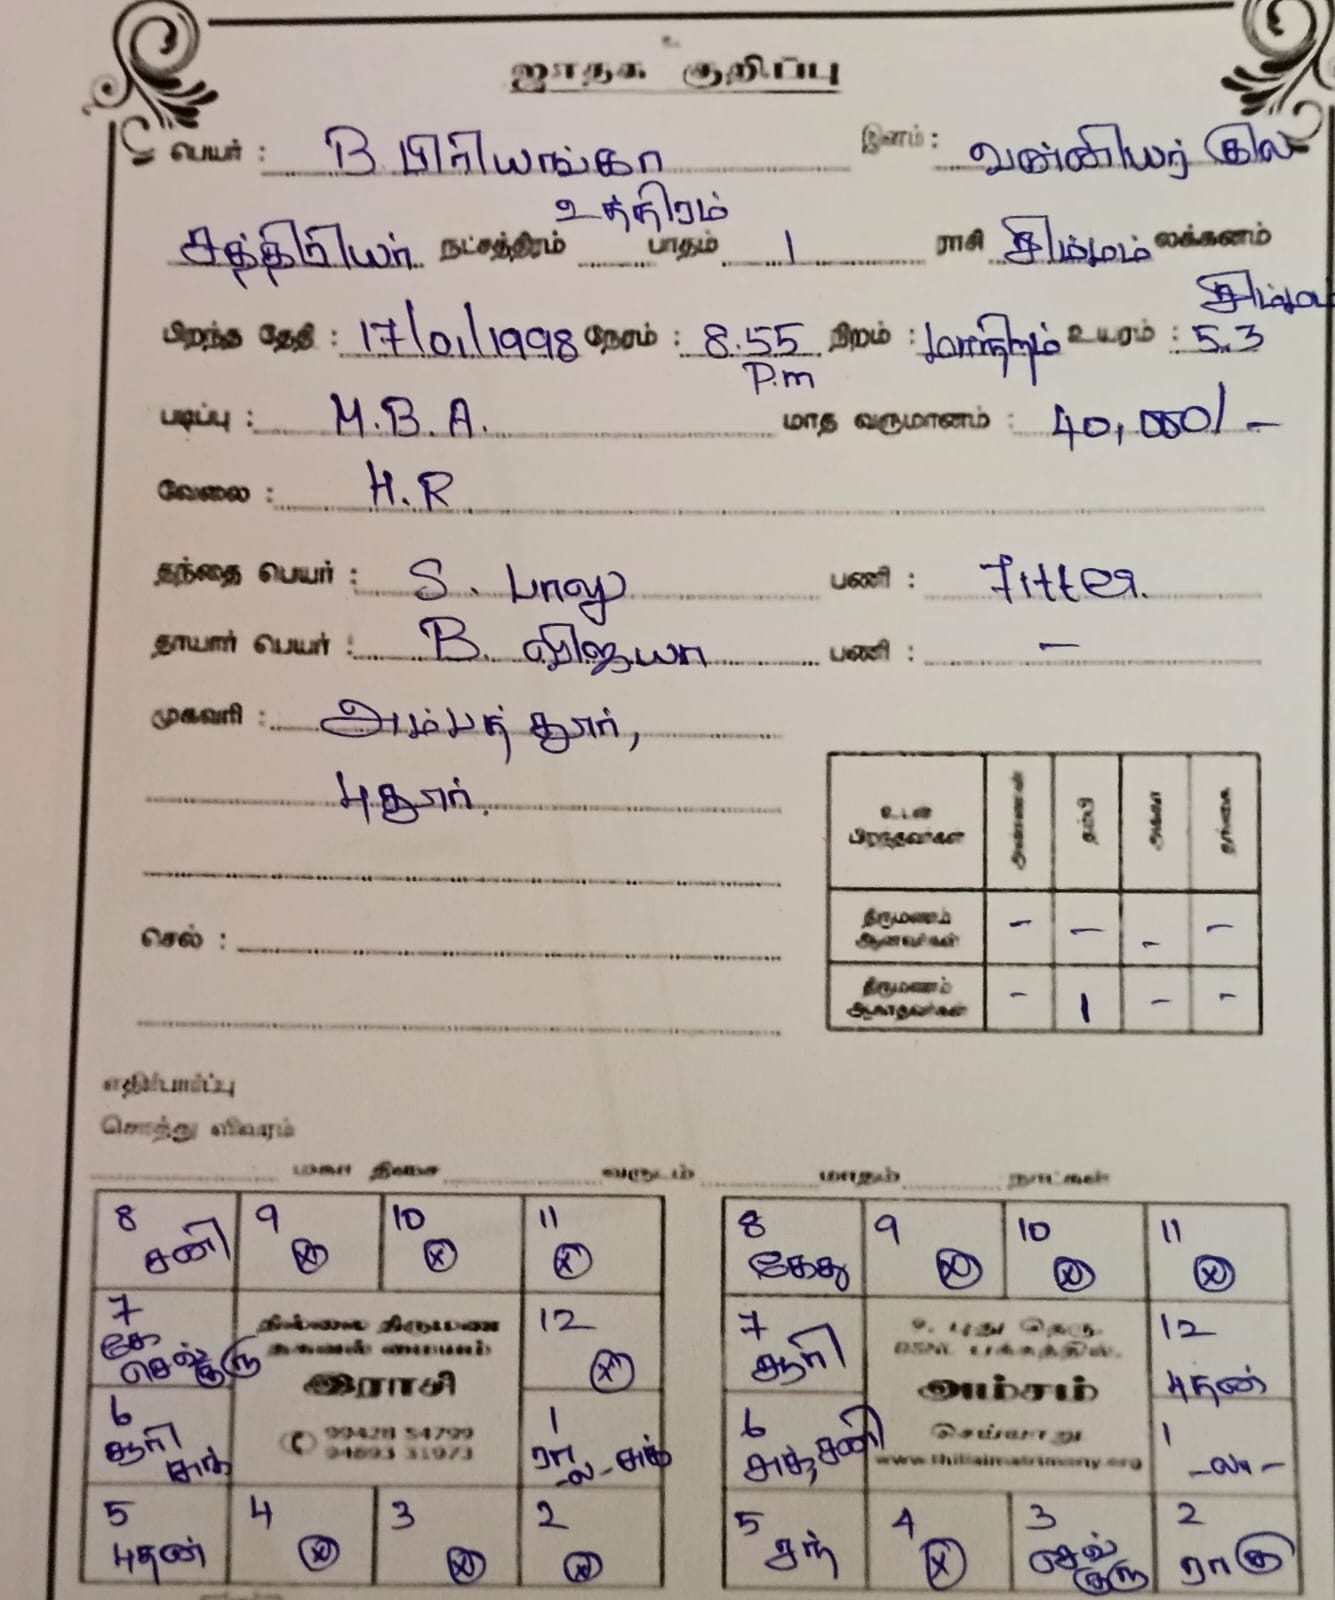 உ
ஜாதக குறிப்பு
பெயர் : B. பிரியங்கா இனம் : வன்னியர் குல
உத்திரம்
சத்திரியர் நட்சத்திரம் பாதம் 1 ராசி சிம்மம் லக்கனம்
சிம்மம்
பிறந்த தேதி : 17/01/1998 நேரம் : 8.55 நிறம் : மாநிறம் உயரம் : 5.3
P.m
படிப்பு : M.B.A. மாத வருமானம் : 40,000/-
வேலை : H.R
தந்தை பெயர் : S. பாலு பணி : Fitter.
தாயார் பெயர் : B. விஜயா பணி : -
முகவரி : அம்பத்தூர்,
புதூர்.
உடன் பிறந்தவர்கள் அண்ணன் தம்பி அக்கா தங்கை
திருமணம் ஆனவர்கள் - - - -
செல் :
திருமணம் ஆகாதவர்கள் - 1 - -
எதிர்பார்ப்பு
சொத்து விவரம்
மகா திசை வருடம் மாதம் நாட்கள்
8 சனி 9 (x) 10 (x) 11 (x)
7 கே செவ் குரு
தில்லை திருமண
தகவல் மையம்
இராசி
99428 54799
94893 31973
12 (x)
6 சூரி சுக்
1 ரா -ல- சந்
5 புதன் 4 (x) 3 (x) 2 (x)
8 கேது 9 (x) 10 (x) 11 (x)
7 சூரி
உ. புது தெரு,
BSNL பக்கத்தில்,
அம்சம்
செய்யாறு
www.thillaimatrimony.org
12 புதன்
6 சுக், சனி
1 -ல-
5 சந் 4 (x) 3 செவ் குரு 2 ராகு